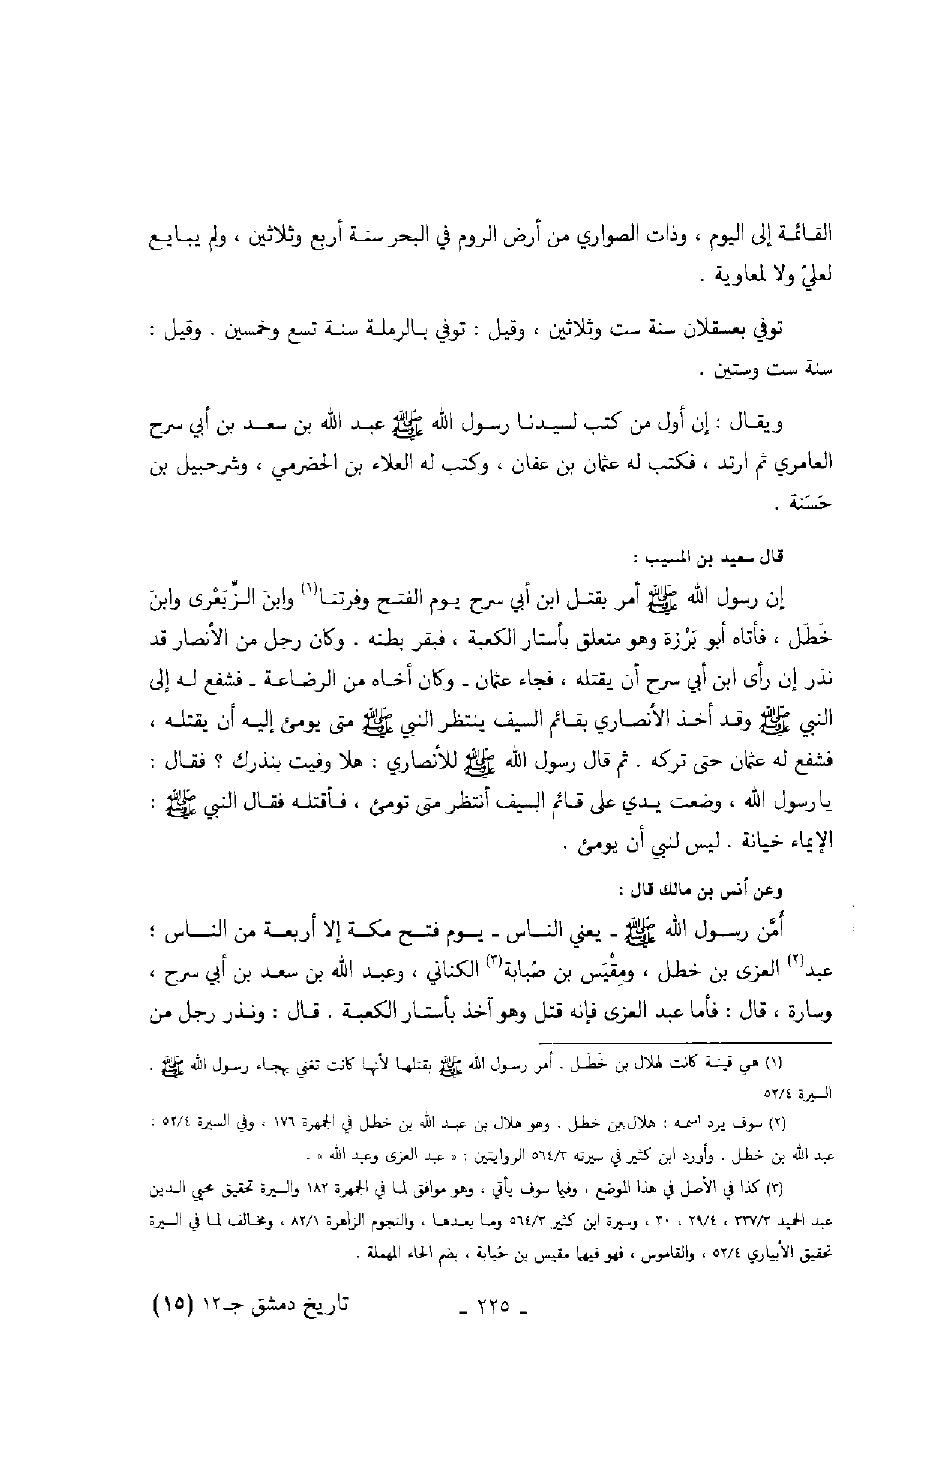 القائمة إلى اليوم ، وذات الصواري من أرض الروم في البحر سنة أربع وثلاثين ، ولم يبايع
لعليّ ولا لمعاوية .
توفي بعسقلان سنة ست وثلاثين ، وقيل : توفي بالرملة سنة تسع وخمسين . وقيل :
سنة ست وستين .
ويقال : إن أول من كتب لسيدنا رسول الله ﷺ عبد الله بن سعد بن أبي سرح
العامري ثم ارتد ، فكتب له عثمان بن عفان ، وكتب له العلاء بن الحضرمي ، وشرحبيل بن
حَسَنة .
قال سعيد بن المسيب :
إن رسول الله ﷺ أمر بقتل ابن أبي سرح يوم الفتح وفرتنا(١) وابنَ الزِّبَعْرى وابنَ
خَطَل ، فأتاه أبو بَرْزة وهو متعلق بأستار الكعبة ، فبقر بطنه . وكان رجل من الأنصار قد
نذر إن رأى ابن أبي سرح أن يقتله ، فجاء عثمان ـ وكان أخاه من الرضاعة ـ فشفع له إلى
النبي ﷺ وقد أخذ الأنصاري بقائم السيف ينتظر النبي ﷺ متى يومئ إليه أن يقتله ،
فشفع له عثمان حتى تركه . ثم قال رسول الله ﷺ للأنصاري : هلا وفيت بنذرك ؟ فقال :
يا رسول الله ، وضعت يدي على قائم السيف أنتظر متى تومئ ، فأقتله فقال النبي ﷺ :
الإيماء خيانة . ليس لنبي أن يومئ .
وعن أنس بن مالك قال :
أَمَّن رسول الله ﷺ ـ يعني الناس ـ يوم فتح مكة إلا أربعة من الناس ؛
عبد(٢) العزى بن خطل ، ومِقْيَس بن صُبابة(٣) الكناني ، وعبد الله بن سعد بن أبي سرح ،
وسارة ، قال : فأما عبد العزى فإنه قتل وهو آخذ بأستار الكعبة . قال : ونذر رجل من
(١) هي قينة كانت لهلال بن خَطَل . أمر رسول الله ﷺ بقتلها لأنها كانت تغني بهجاء رسول الله ﷺ .
السيرة ٥٢/٤
(٢) سوف يرد اسمه : هلال بن خطل . وهو هلال بن عبد الله بن خطل في الجمهرة ١٧٦ ، وفي السيرة ٥٢/٤ :
عبد الله بن خطل . وأورد ابن كثير في سيرته ٥٦٤/٣ الروايتين : « عبد العزى وعبد الله » .
(٣) كذا في الأصل في هذا الموضع ، وفيما سوف يأتي ، وهو موافق لما في الجمهرة ١٨٢ والسيرة تحقيق محيي الدين
عبد الحميد ٣٣٧/٣ ، ٢٩/٤ ، ٣٠ ، وسيرة ابن كثير ٥٦٤/٣ وما بعدها ، والنجوم الزاهرة ٨٢/١ ، ومخالف لما في السيرة
تحقيق الأبياري ٥٢/٤ ، والقاموس ، فهو فيهما مقيس بن حُبابة ، بضم الحاء المهملة .
ـ ٢٢٥ ـ تاريخ دمشق جـ١٢ (١٥)